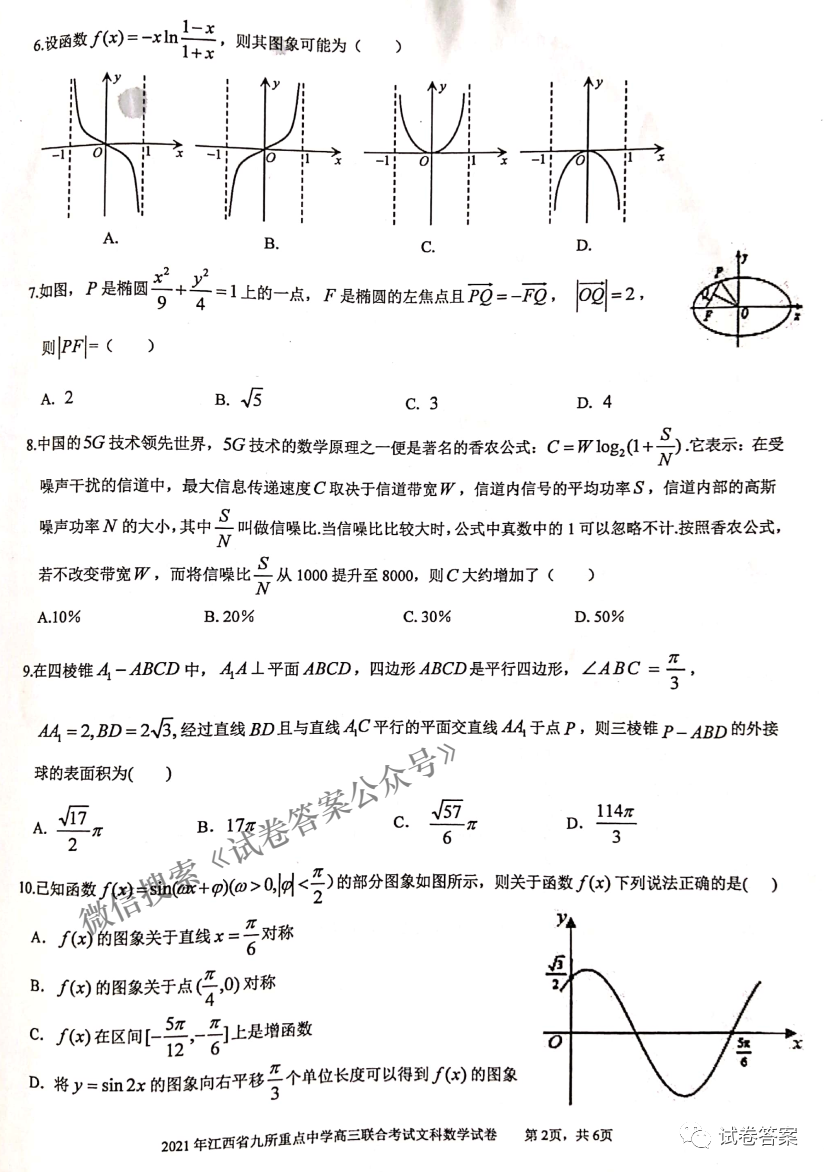 6.设函数 f(x)=-xln (1-x)/(1+x)，则其图象可能为（    ）
y y y y
-1 O 1 x -1 O 1 x -1 O 1 x -1 O 1 x
A. B. C. D.
7.如图，P 是椭圆 x²/9 + y²/4 =1 上的一点，F 是椭圆的左焦点且 PQ⃗ = -FQ⃗，|OQ⃗|=2，
则|PF|=（    ）
y P Q F O x
A. 2 B. √5 C. 3 D. 4
8.中国的5G 技术领先世界，5G 技术的数学原理之一便是著名的香农公式：C=Wlog₂(1+S/N).它表示：在受
噪声干扰的信道中，最大信息传递速度C 取决于信道带宽W，信道内信号的平均功率S，信道内部的高斯
噪声功率 N 的大小,其中 S/N 叫做信噪比.当信噪比比较大时,公式中真数中的 1 可以忽略不计.按照香农公式,
若不改变带宽W，而将信噪比 S/N 从 1000 提升至 8000，则C 大约增加了（    ）
A.10% B. 20% C. 30% D. 50%
9.在四棱锥 A₁-ABCD 中，A₁A⊥平面 ABCD，四边形 ABCD是平行四边形，∠ABC = π/3，
AA₁=2,BD=2√3,经过直线 BD且与直线 A₁C 平行的平面交直线 AA₁于点 P，则三棱锥 P-ABD 的外接
球的表面积为(    )
A. √17/2 π B. 17π C. √57/6 π D. 114π/3
10.已知函数 f(x)=sin(ωx+φ)(ω>0,|φ|<π/2)的部分图象如图所示，则关于函数 f(x)下列说法正确的是(    )
A. f(x)的图象关于直线 x=π/6 对称
B. f(x)的图象关于点(π/4,0)对称
C. f(x)在区间[-5π/12,-π/6]上是增函数
D. 将 y=sin2x 的图象向右平移 π/3 个单位长度可以得到 f(x)的图象
y √3/2 O 5π/6 x
微信搜索《试卷答案公众号》
2021 年江西省九所重点中学高三联合考试文科数学试卷 第 2页，共 6页
试卷答案